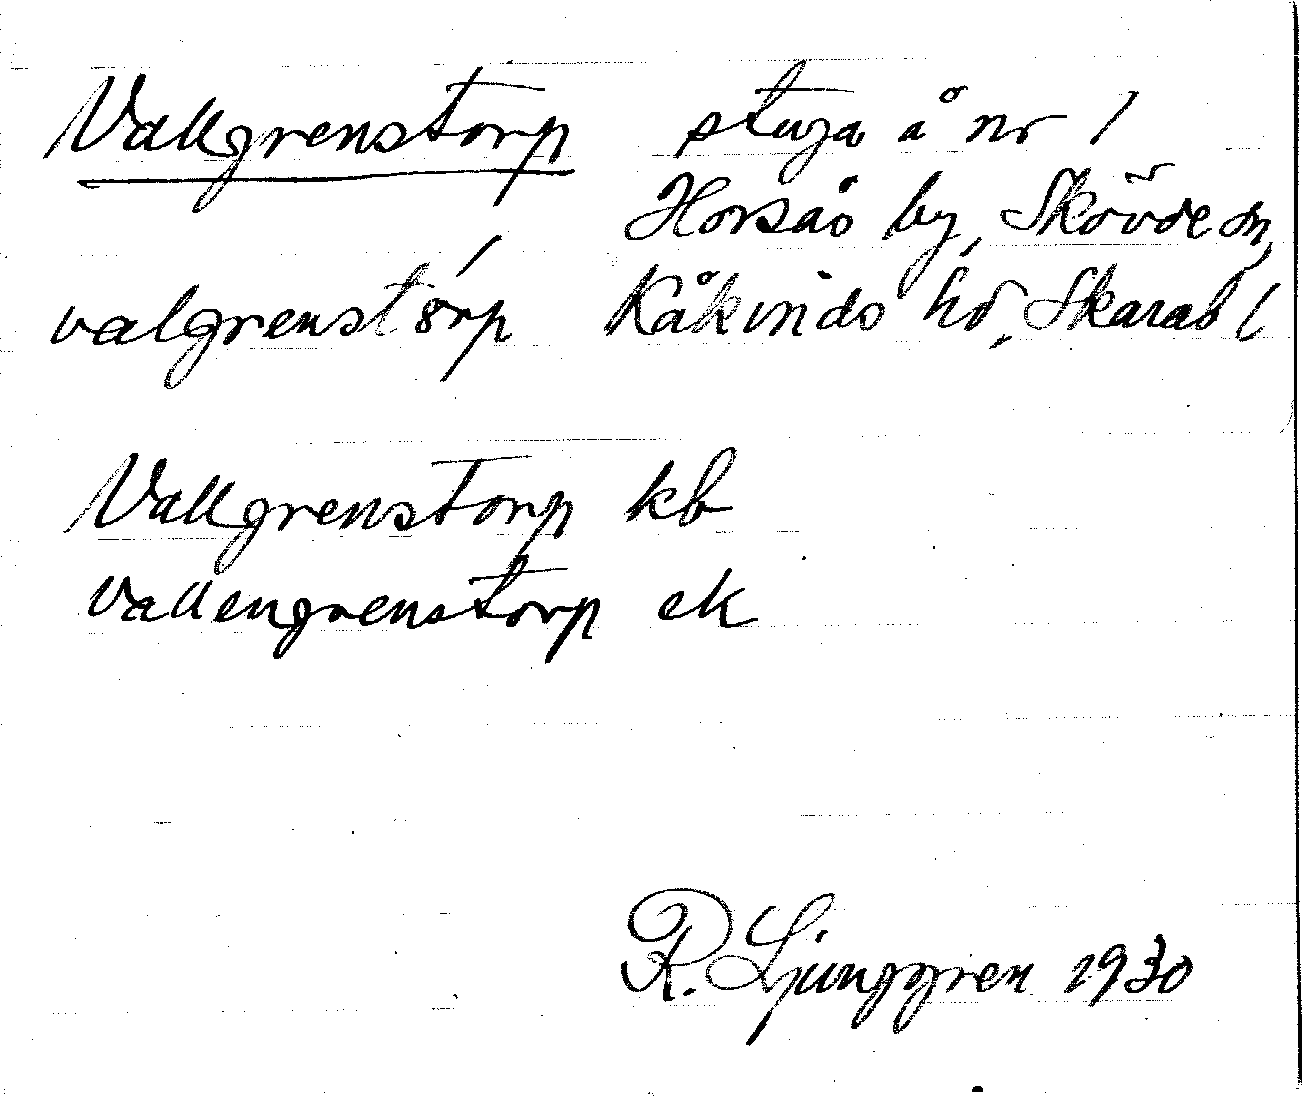 Vallgrenstorp stuga å nr 1
Horsås by, Skövde sn,
valgrenstórp Kåkinds hd, Skarab l
Vallgrenstorp kb
Vallengrenstorp ek
R. Ljunggren 1930